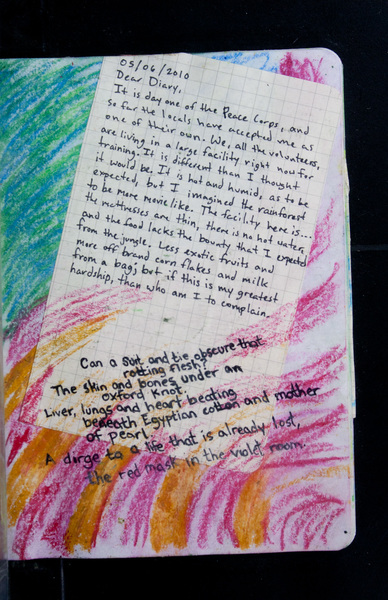 05/06/2010
Dear Diary,
It is day one of the Peace Corps, and
so far the locals have accepted me as
one of their own. We, all the volunteers,
are living in a large facility right now for
training. It is different than I thought
it would be. It is hot and humid, as to be
expected, but I imagined the rainforest
to be more movie like. The facility here is...
the mattresses are thin, there is no hot water,
and the food lacks the bounty that I expected
from the jungle. Less exotic fruits and
more off brand corn flakes and milk
from a bag; but if this is my greatest
hardship, than who am I to complain.
Can a suit and tie obscure that
rotting flesh?
The skin and bones under an
oxford knot.
Liver, lungs and heart beating
beneath Egyptian cotton and mother
of pearl.
A dirge to a life that is already lost,
the red mask in the violet room.